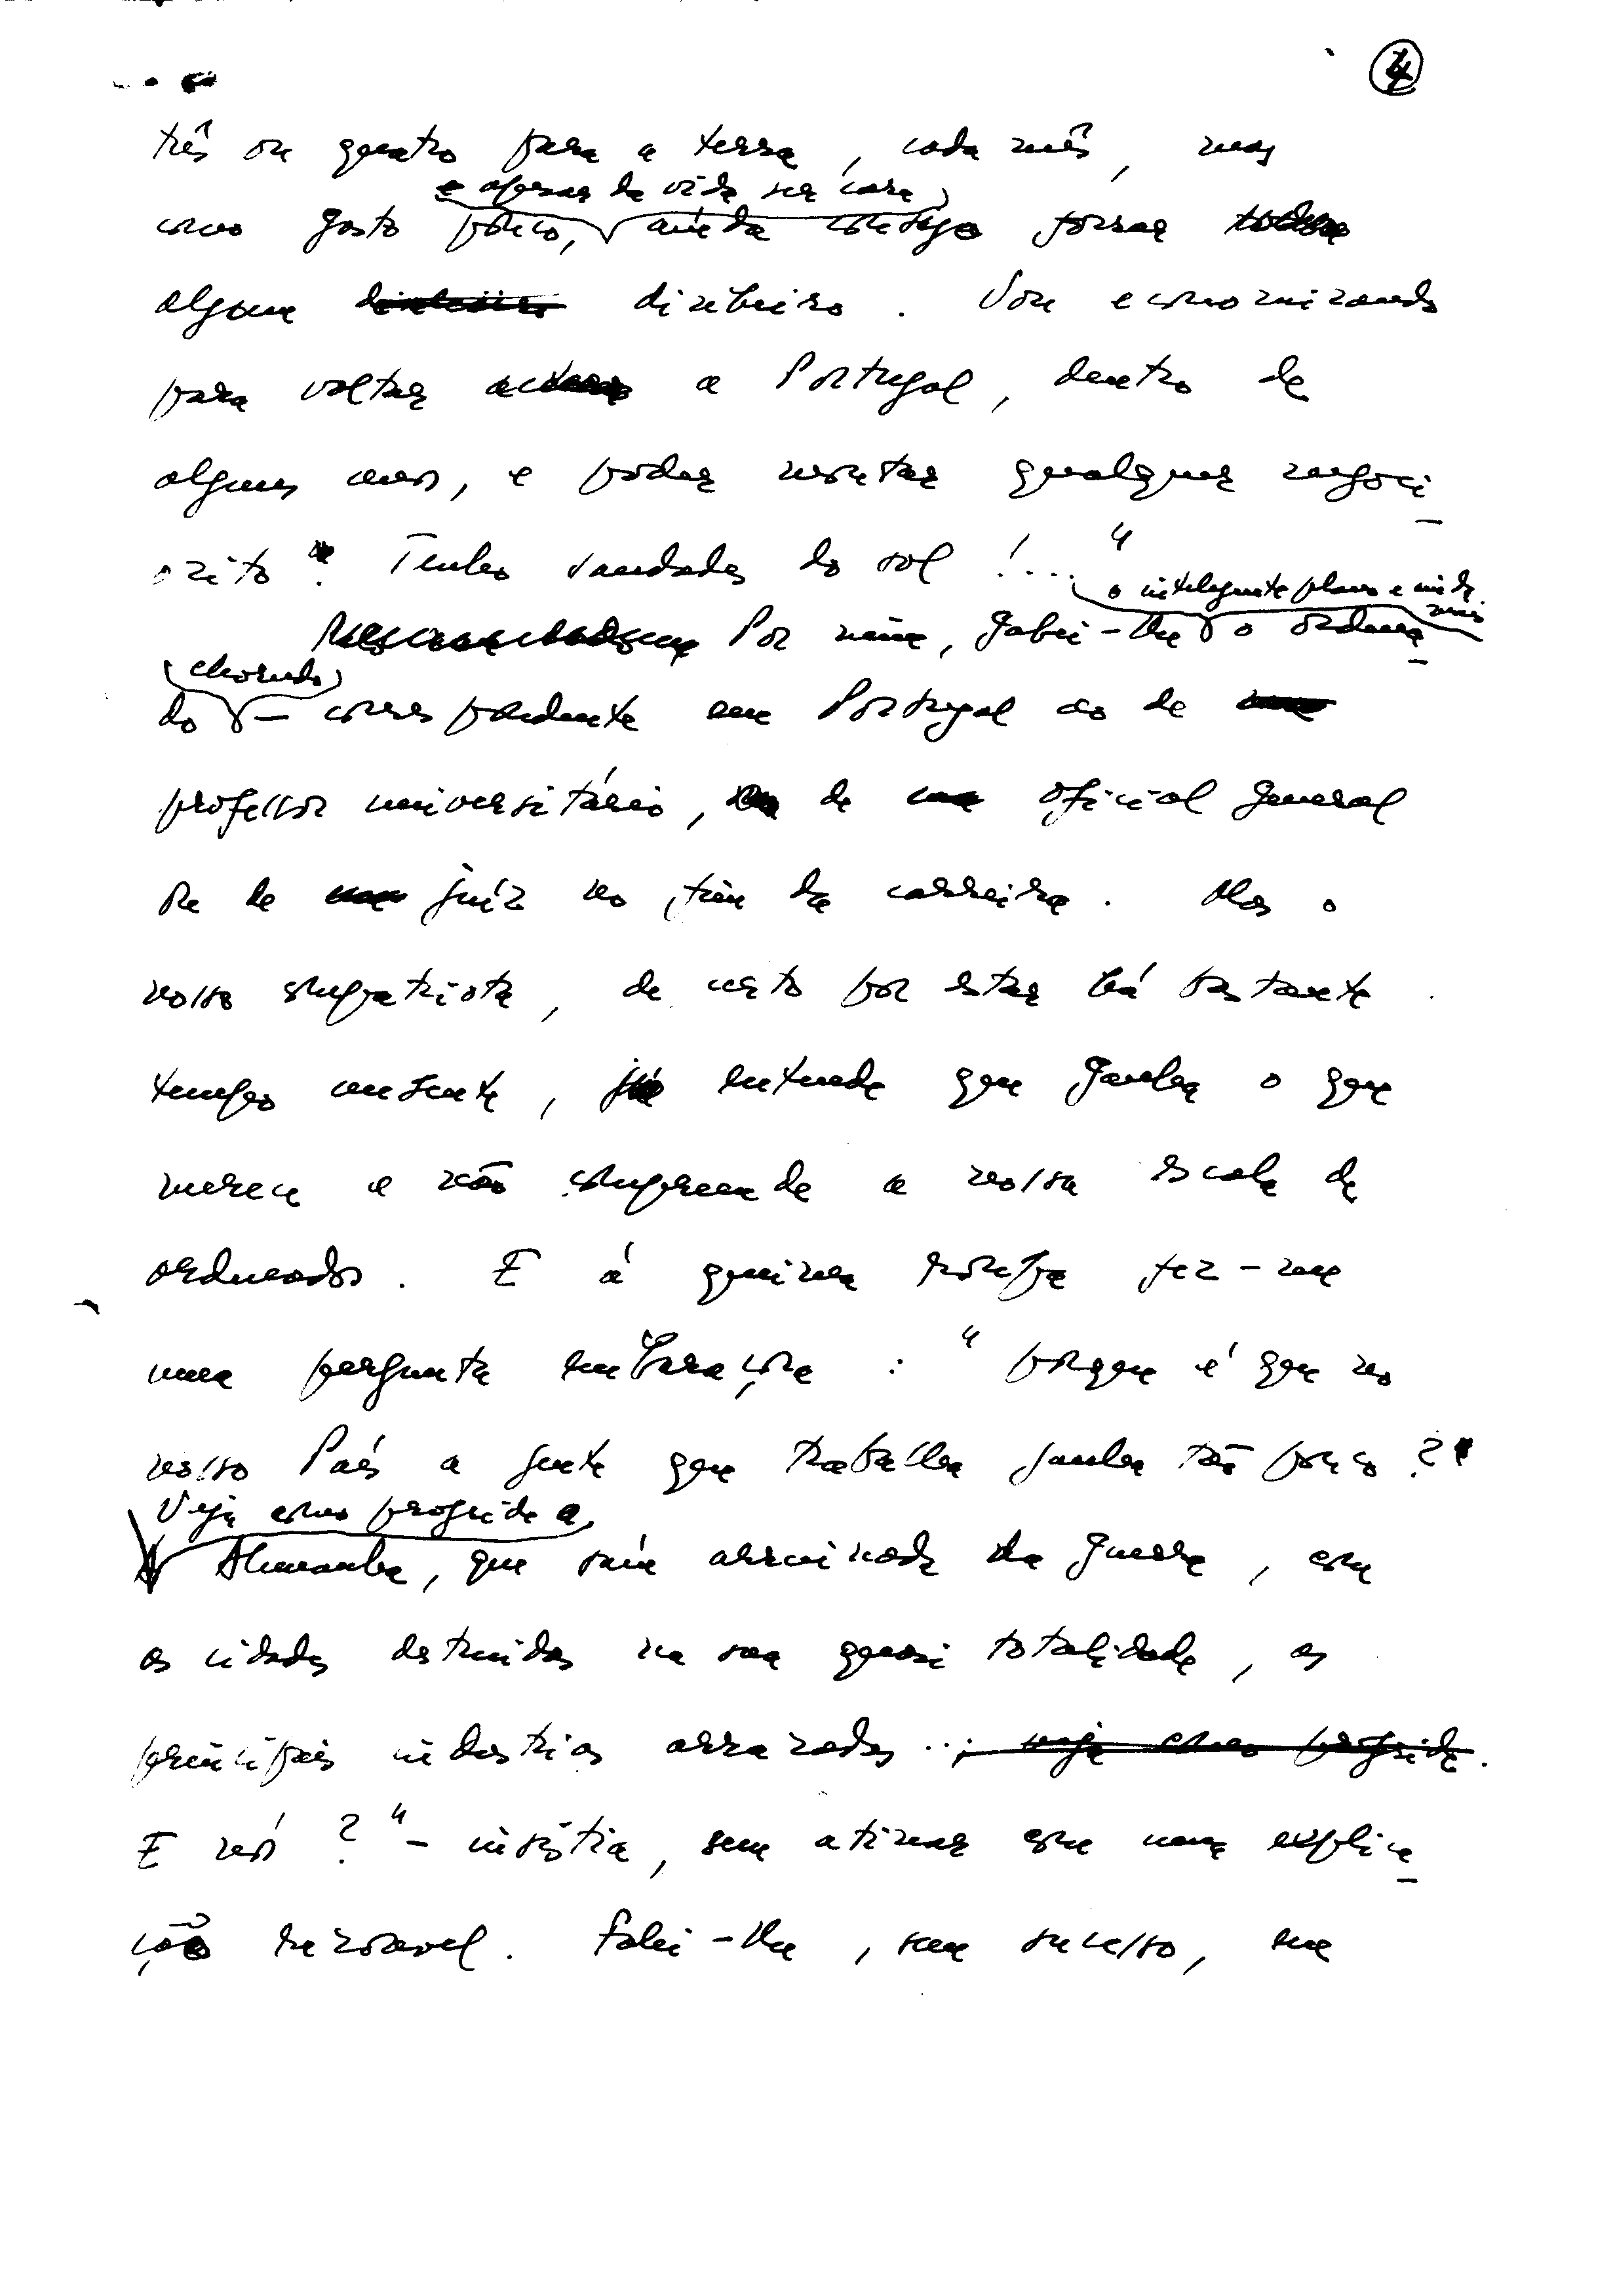 4
três ou quatro para a terra, cada mês, mas
e apesar da vida ser cara,
como gasto pouco, ainda consigo forrar
algum dinheiro. Vou economizando
para voltar a Portugal, dentro de
alguns anos, e poder montar qualquer negoci_
ozito. Tenho saudades do sol!..."
o inteligente plano e ainda mais
Por mim, gabei-lhe o ordena_
chorudo
do — correspondente em Portugal ao de
professor universitário, de oficial general
ou de juiz no fim da carreira. Mas o
nosso compatriota, de certo por estar há bastante
tempo ausente, já entende que ganha o que
merece e não compreende a nossa escala de
ordenados. E à queima roupa fez-me
uma pergunta embaraçosa: "porque é que no
nosso País a gente que trabalha ganha tão pouco?
Veja como progride a
Alemanha, que saíu arruinada da guerra, com
as cidades destruidas na sua quasi totalidade, as
principais industrias arrazadas...
E nós?" – insistia, sem atinar com uma explica_
ção razoavel. Falei-lhe, sem sucesso, em